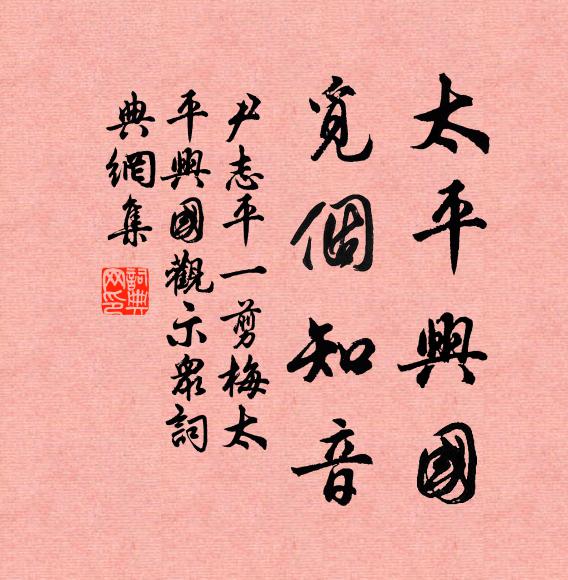 太平興國
覓個知音
尹志平一剪梅太
平興國觀示眾詞
典網集
詞典网印